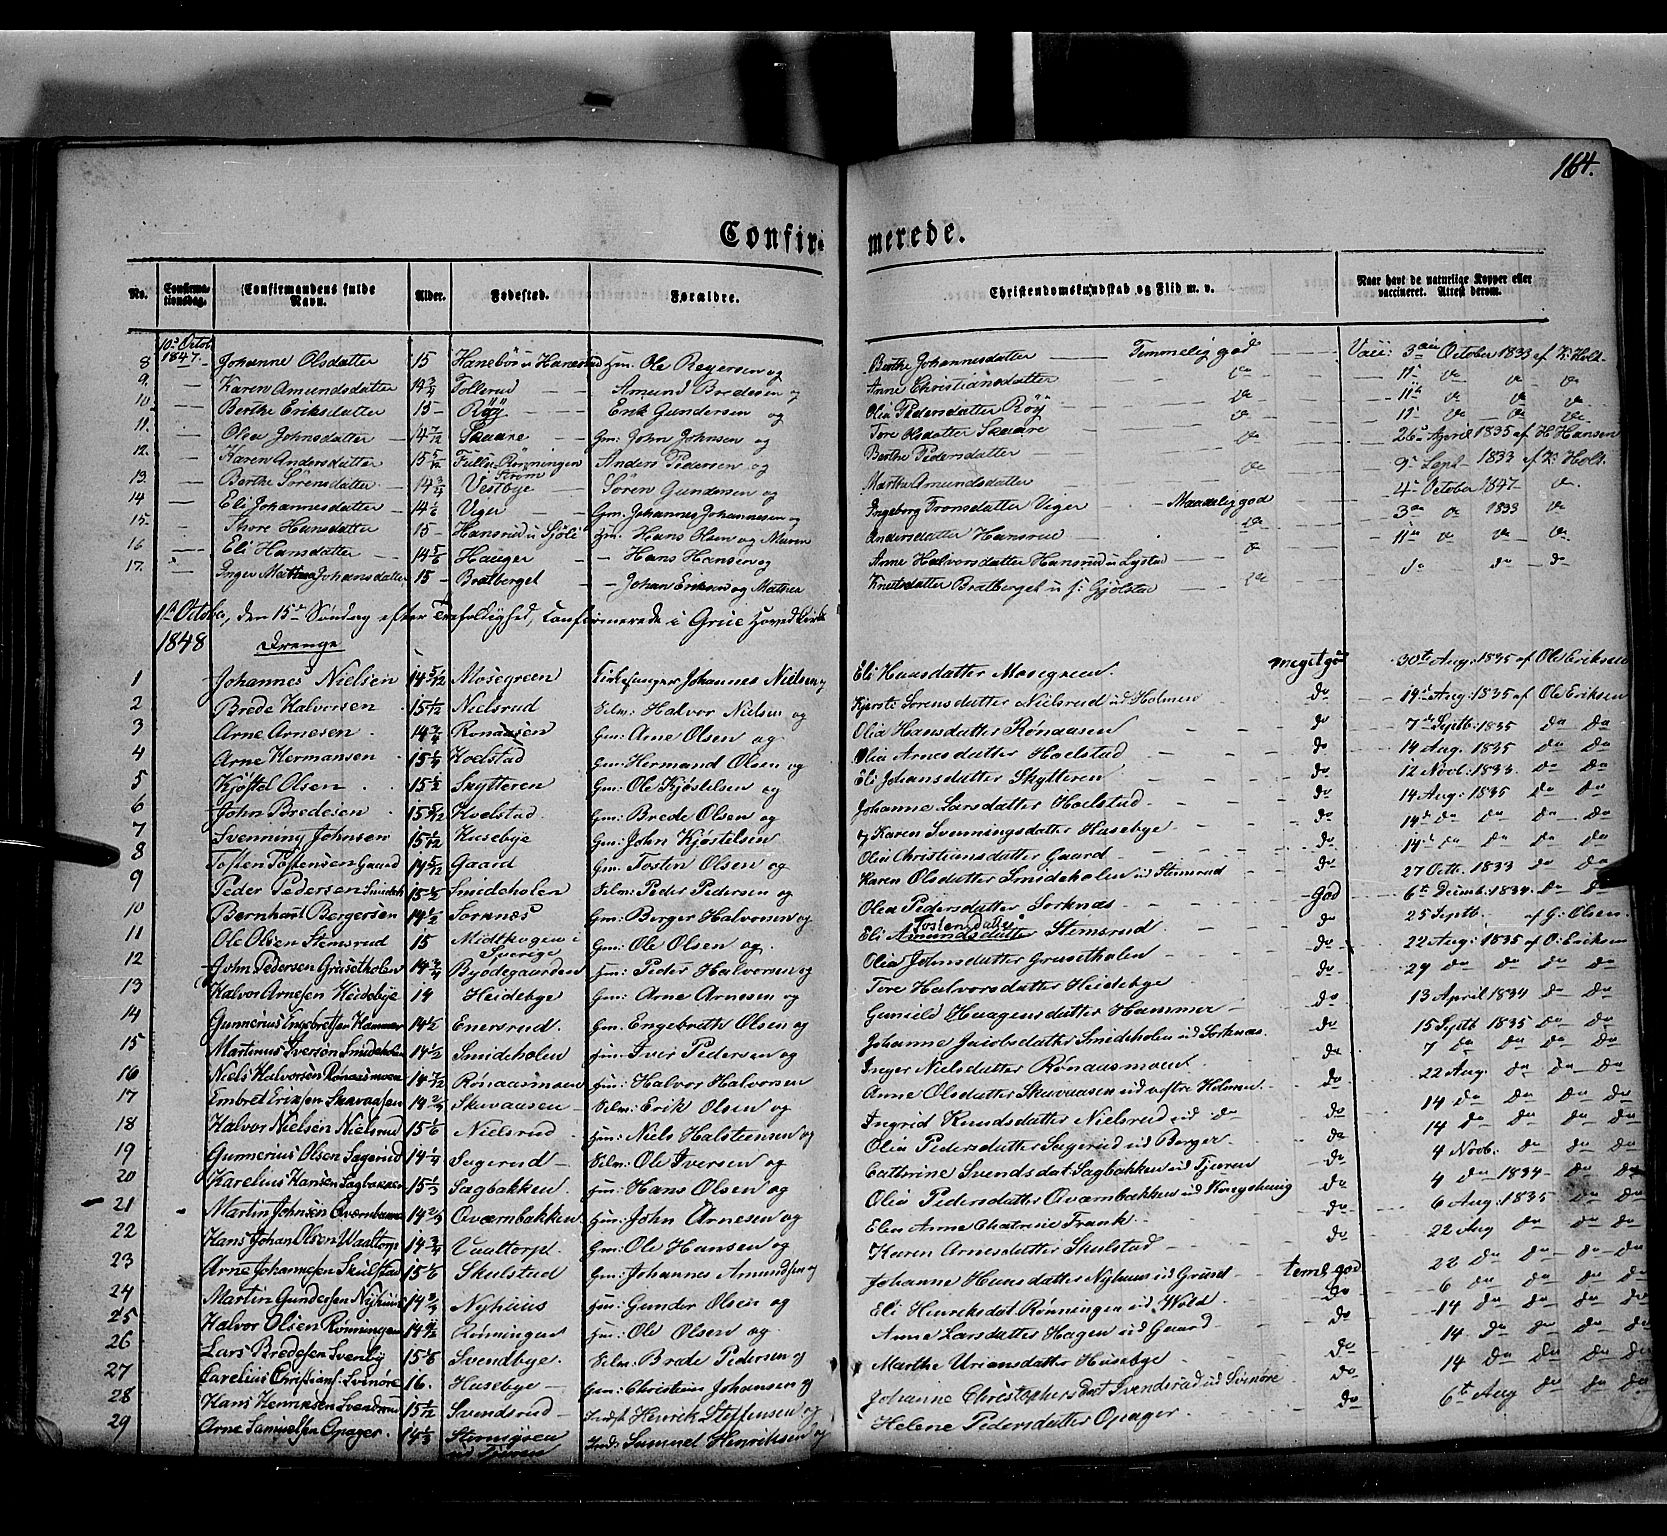 164.
Confirmerede.
No. Confirmationsdag. Confirmandens fulde Navn. Alder. Fødested. Forældre. Christendomskundskab og Flid m. v. Naar havt de naturlige Kopper eller vaccineret. Attest derom.
10de Octob 1847.
8 Johanne Olsdatter 15 Ole Reyersen og Berthe Johannesdatter Temmelig god 3die October 1833 af K. Holt
9. Karen Amundsdatter 14 3/4 Tollerud Amund Bredesen og Anne Christiansdatter do
10. Berthe Eriksdatter 15 Röy Erik Gundersen og Olia Pedersdatter Röy do
11. Olea Johnsdatter 14 7/12 Skaare Gm: John Johnsen og Tore Olsdatter Skaare do 26 April 1835 af H. Hansen
12. Karen Andersdatter 15 5/12 Fulla Rønningen Anders Pedersen og Berthe Pedersdatter 9 Sept 1833 af K. Holt
13. Berthe Sörensdatter 14 3/4 Vestbye Sören Gundersen og Marthe Amundsdatter do 4 October 1847 do
14 Eli Johannesdatter Viger Gm. Johannes Johannesen og Ingeborg Tronsdatter Viger Maadelig god 3die do 1833 do
15. Thore Hansdatter 15 Hansrud u Sjöli Hans og Maren Andersdatter Hansrud do 11 do do do
16 Eli Hansdatter 14 5/6 Hauger Hans Hansen og Anne Halvorsdatter Hansrud u Lystad do
17. Inger Mathea Johansdatter 15 Bratberget Johan Eriksen og Mathea Knutsdatter Bratberget u Gjølstad do
1st October, den 15de Søndag efter Trefoldighed, Confirmerede i Grue Hoved Kirke
1848 Drenge
1 Johannes Nielsen 14 5/12 Mosegreen Kirkesanger Johannes Nielsen og Eli Hansdatter Mosegreen. meget god 30te Aug: 1835 af Ole Eriksen
2 Brede Halvorsen 15 1/12 Nielsrud Selm: Halvor Nielsen og Kjersti Sorensdatter Nielsrud ud Holmen do 19de Aug: 1835 af Ole Eriksen
3 Arne Arnesen 14 3/4 Rønaasen Gm: Arne Olsen og Olia Hansdatter Rønaasen do 7de Septb: 1835 do do
4 Arne Hermansen 15 1/4 Hoelstad Gm: Hermand Olsen og Olia Arnesdatter Hoelstad do 14 Aug. 1835 do do
5 Kjøstel Olsen 15 1/2 Skytteren Gm: Ole Kjøstelsen og Eli Johansdatter Skytteren do 12 Novb: 1833. do do
6 John Bredesen 15 5/12 Hoelstad Gm: Brede Olsen og Johanne Larsdatter Hoelstad do 14 Aug: 1835 do do
7 Svenning Johnsen 15 1/12 Husebye Gm: John Kjøstelsen og Karen Svenningsdatter Husebye do 14de do do do
8 Tosten Tostensen Gaard 14 5/12 Gaard Gm: Tosten Olsen og Olia Christiansdatter Gaard do 14de do do do
9 Peder Pedersen Smideh 15 1/2 Smideholen Selm: Peder Pedersen og Karen Olsdatter Smideholen ud Stemsrud do 27 Octb. 1833 do do
10 Bernhart Bergersen 14 1/2 Sorknæs Gm: Berger Halvorsen og Olea Pedersdatter Sorknæs god 6te Decmb: 1834. do do
11 Ole Olsen Stemsrud 15 Midtskogen i Sverige Gm: Ole Olsen og Eli Amundsdatter Tostensdatter Stemsrud. do 25 Septb. af G: Olsen.
12 John Pedersen Grusetholen 14 3/4 Bydegaarden Hm: Peder Halvorsen og Olia Johnsdatter Grusetholen do 22 Aug: 1835 af O. Eriksen
13 Halvor Arnesen Heidebye 14 Heidebye Gm: Arne Arnesen og Tore Halvorsdatter Heidebye do 29 do do do
14 Gunnerius Engebretsen Hammer 14 1/2 Enersrud. Gm: Engebreth Olsen og Gunild Haagensdatter Hammer do 13 April 1834 do do
15 Martinus Iversøn Smideholen 14 1/2 Smideholen Hm: Iver Pedersen og Johanne Jacobsdatter Smideholen ud Sorknæs. do 15 Septb 1835 do do
16 Niels Halvorsen Rønaasmoen 14 7/12 Rønaasmoen Hm: Halvor Halvorsen Inger Nielsdatter Rønaasmoen do 7 do do do do
17 Embret Eriksen Skavaasen 14 2/3 Skavaasen Selm: Erik Olsen og Anne Olsdatter Skavaasen ud vestre Holmen do 22 Aug. do do do
18 Halvor Nielsen Nielsrud 15 1/6 Nielsrud Hm: Niels Halsteensen og Ingrid Knudsdatter Nielsrud ud do do 14 do do do do
19 Gunnerius Olsen Sagerud 14 1/4 Sagerud Selm: Ole Iversen og Olia Pedersdatter Sagerud ud Berger do 14 do do do do
20 Karelius Hansen Sagbakken 15 1/3 Sagbakken. Hm: Hans Olsen og Cathrine Svendsdat Sagbakken ud Tjuren do 4 Novb. do do do
21 Martin Johnsen Qværnbakken 14 2/3 Qværnbakken Hm: John Arnesen og Olia Pedersdatter Qværnbakken ud Kongshaug do 4 do 1834 do do
22 Hans Johan Olsen Waaltorp 14 3/4 Vaaltorp. Gm: Ole Hansen og Elen Anne Chatrine Frank do 6 Aug: 1835 do do
23 Arne Johannesen Skulstad 15 1/6 Skulstad Gm: Johannes Amundsen og Karen Arnesdatter Skulstad do 22 Aug do do do
24 Martin Gundersen Nyhuus 14 Nyhuus Hm: Gunder Olsen og Johanne Hansdatter Nyhuus ud Gruset teml. god 22 do do do do
25 Halvor Olsen Rønningen 14 Rønningen Hm: Ole Olsen og Eli Henriksdat Rønningen ud Wold do 6 do do do do
26 Lars Bredesen Svenby 15 1/6 Svendbye. Selm: Brede Pedersen og Anne Larsdatter Hagen ud Gaard do 14 do do do do
27 Carelius Christians. Svenøre 16. Husebye Gm: Christian Johansen og Marthe Uriansdatter Husebye do 14 do do do do
28 Hans Henriksen Svendsrud 15 1/12 Svendsrud Indst Henrik Steffensen og Johanne Christophersdat Svendsrud ud Svenøre do 14 do do do do
29 Arne Samuelsen Opager. 14 1/3 Stemyren ud Tjuren Inds: Samuel Henriksen og Helene Pedersdatter Opager. do 6te Aug do do do